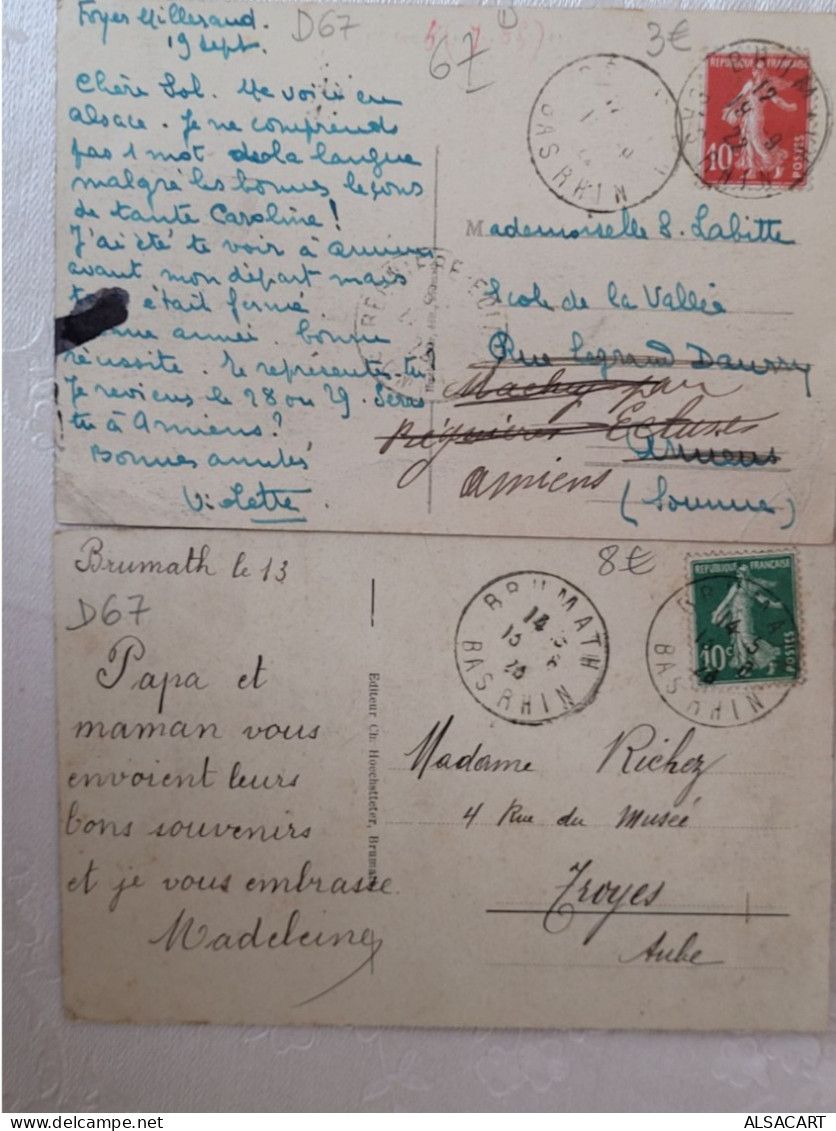 Foyer Millerand.
19 sept.
D67
67
3€
Chère Sol. Me voici en
alsace. Je ne comprends
pas 1 mot de la langue
malgré les bonnes leçons
de tante Caroline!
J'ai été te voir à amiens
avant mon départ mais
était fermé.
année. bonne
réussite.
Je reviens le 28 ou 29. Seras
tu à Amiens?
Bonnes amitiés
Violette.
BAS RHIN
REPUBLIQUE FRANÇAISE
10c
POSTES
Mademoiselle S. Labitte
Ecole de la Vallée
Rue Legrand Daussy
Machy par
Régnières Ecluses
Amiens
amiens
(Somme)
Brumath le 13
D67
8€
Papa et
maman vous
envoient leurs
bons souvenirs
et je vous embrasse.
Madeleine
Editeur Ch. Hoechstetter, Brumath
BRUMATH
BAS RHIN
REPUBLIQUE FRANÇAISE
10c
POSTES
BAS RHIN
Madame Richez
4 Rue du Musée
Troyes
Aube
ALSACART